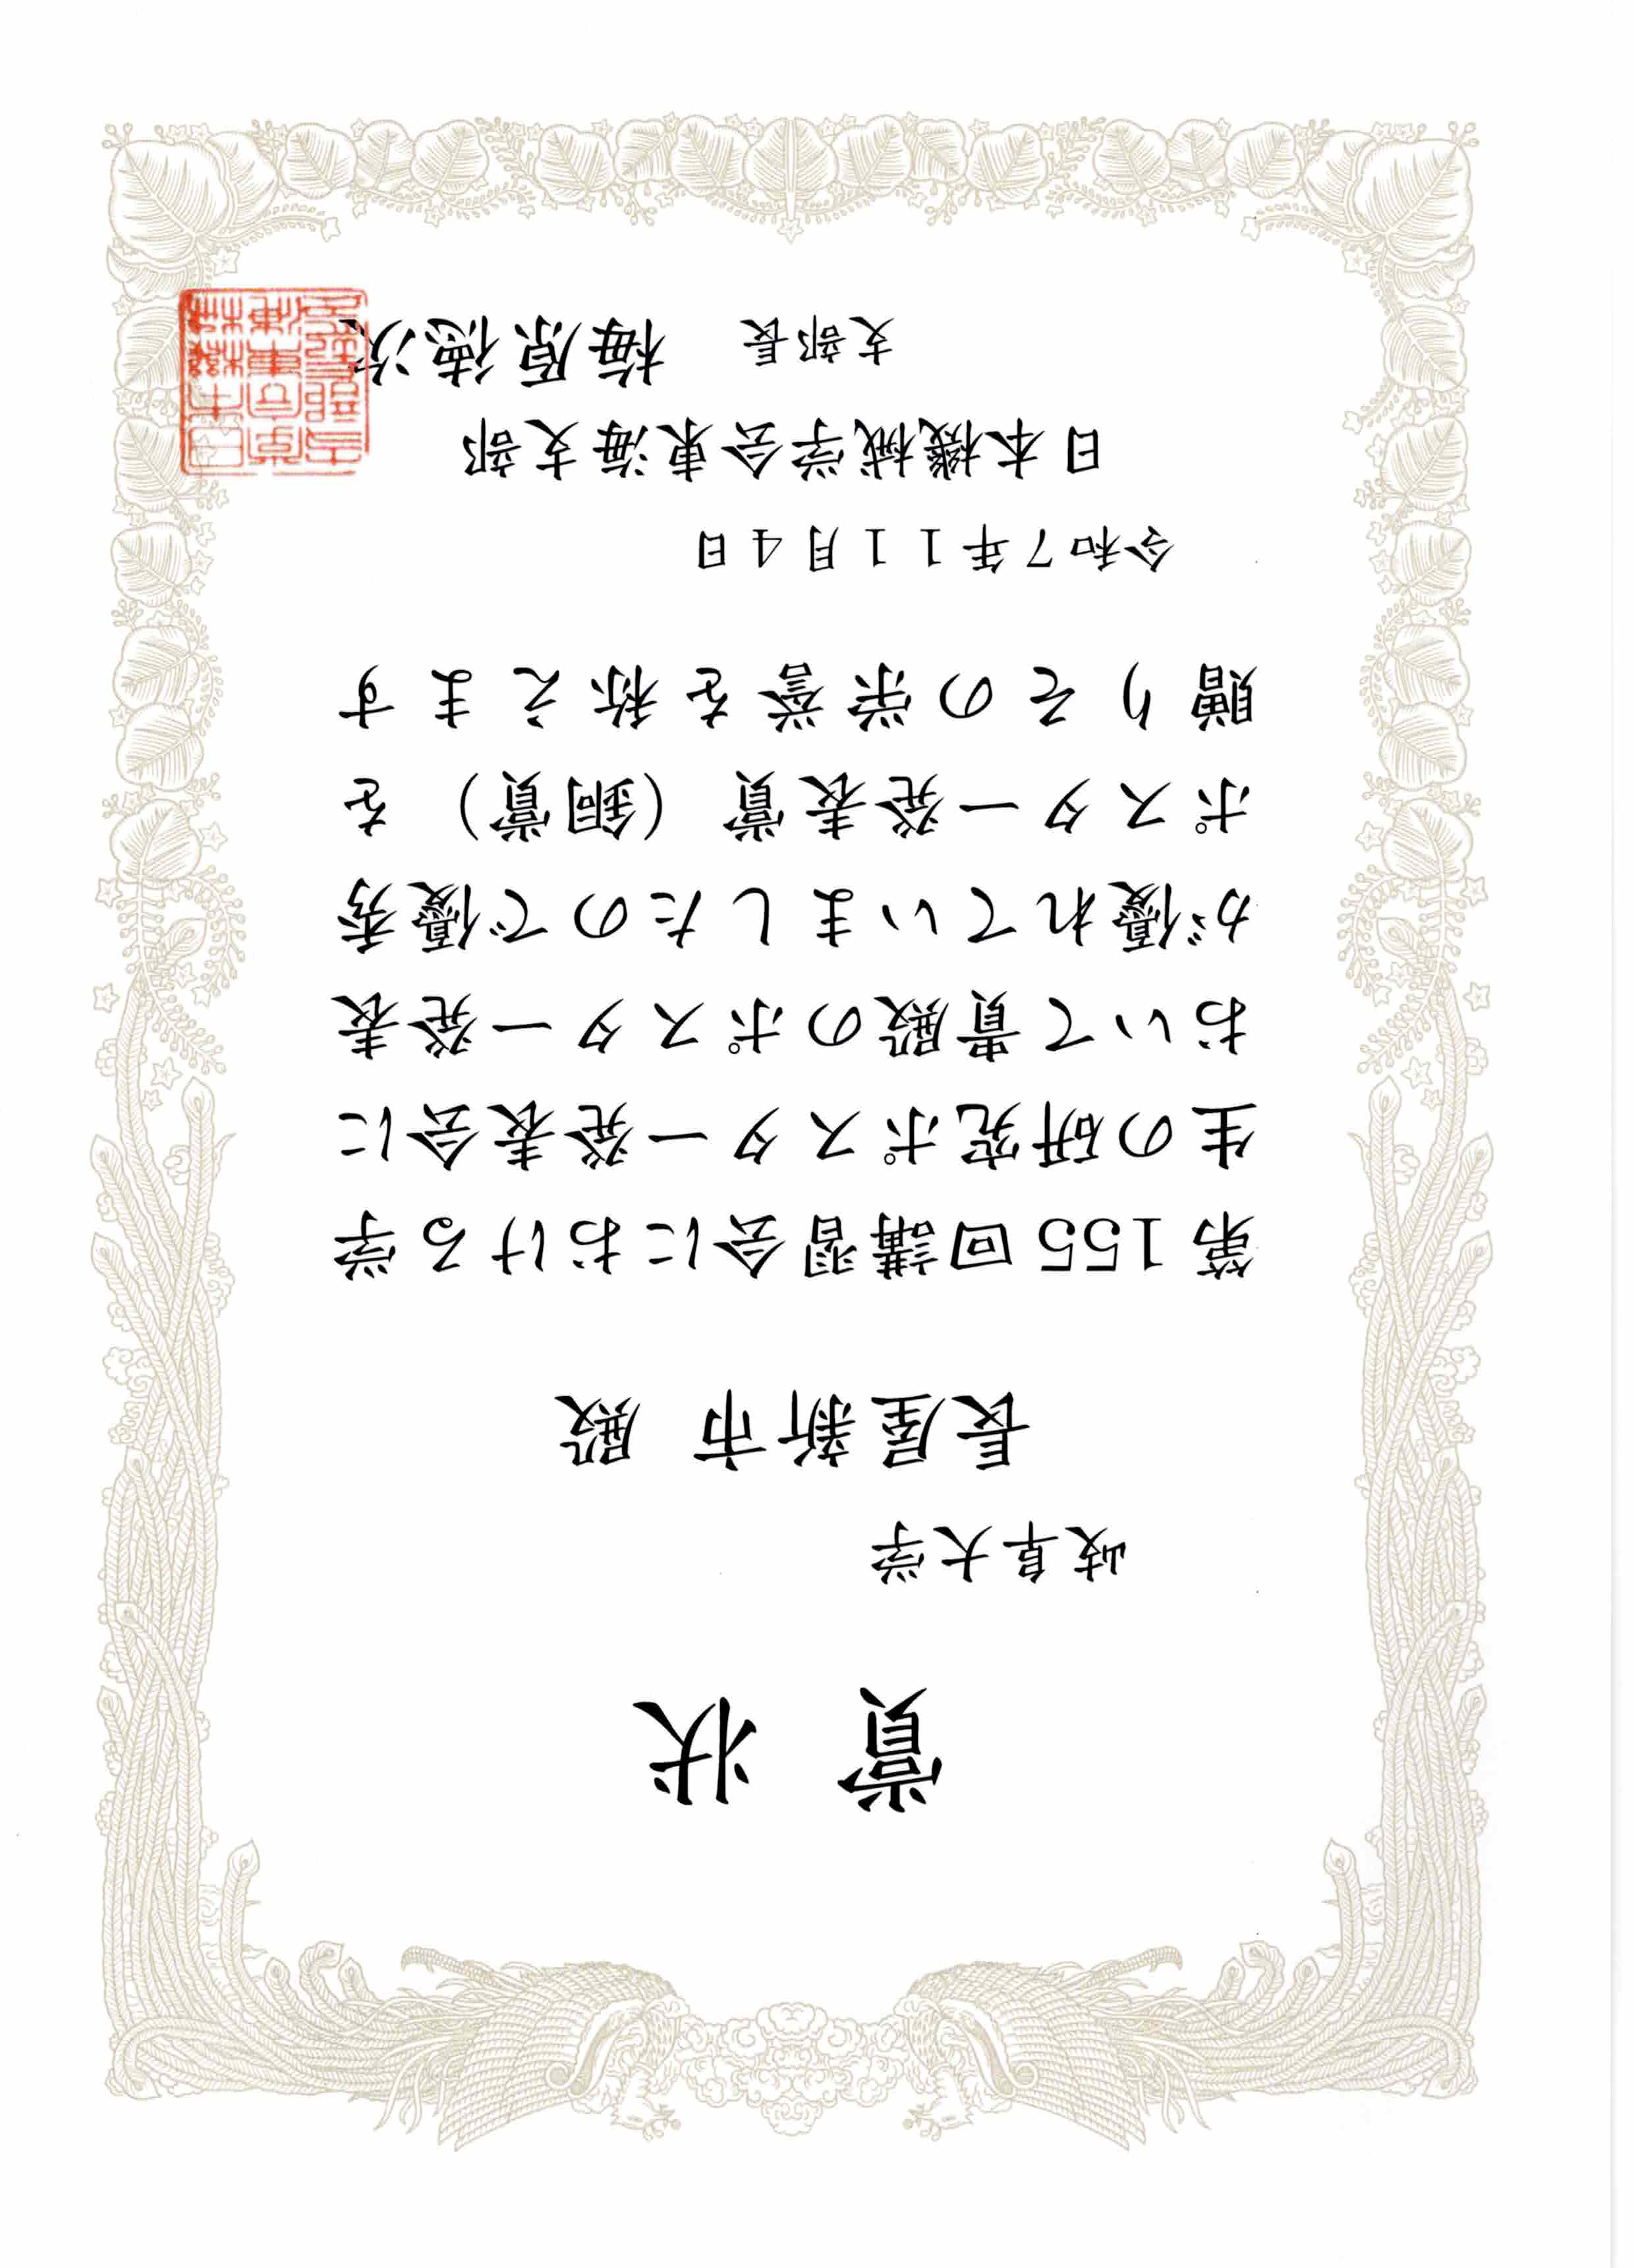 賞状
岐阜大学
長屋新市 殿
第155回講習会における学
生の研究ポスター発表会に
おいて貴殿のポスター発表
が優れていましたので優秀
ポスター発表賞（銅賞）を
贈りその栄誉を称えます
令和7年11月4日
日本機械学会東海支部
支部長 梅原徳次